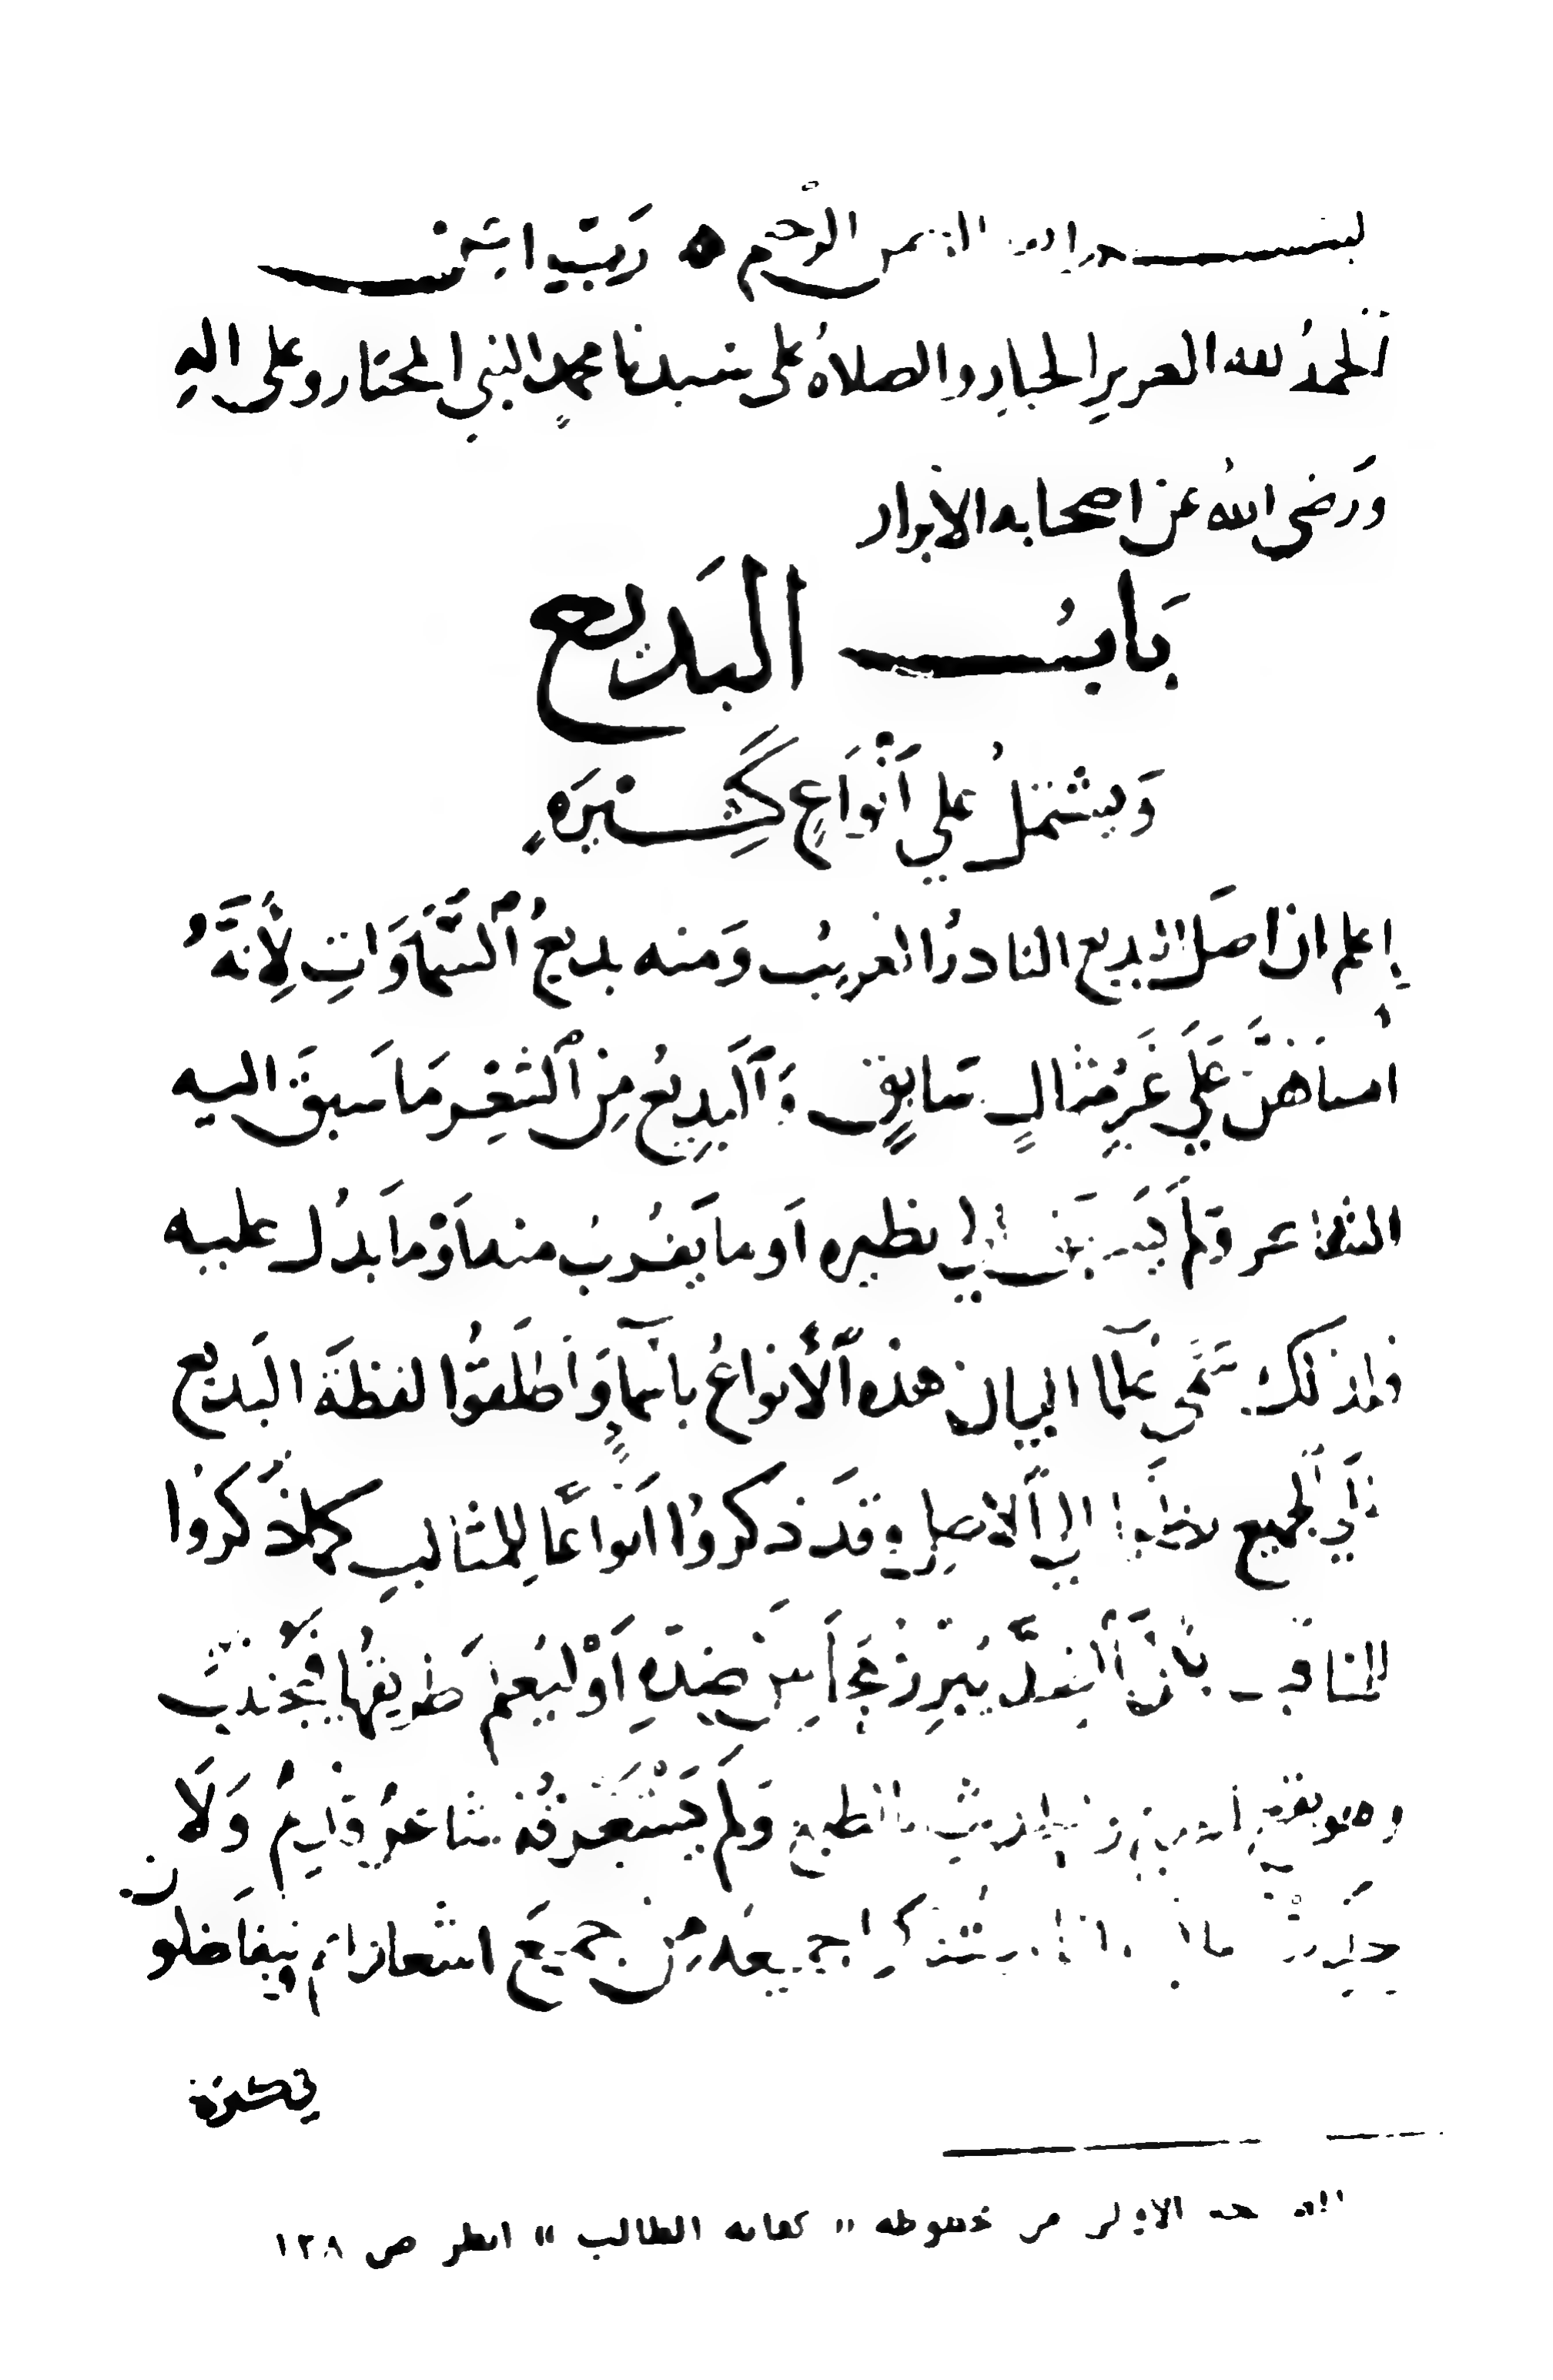 بسم الله الرحمن الرحيم ه رَبّ اعِن
الحمدُ لله العزيزِ الجبارِ والصلاةُ على سيدنا محمدٍ النبي المختار وعلى الهِ
ورَضى اللهُ عن اصحابه الابرار
بَابُ البَديع
وَيشتملُ علي أنْوَاعٍ كَثِيرَةٍ
إعلم ان اصَل البديع النادرُ الغريبُ وَمنه بديعُ السَّمَاوَاتِ لِأَنَّهُ
أنشاهنَّ عَلَي غَيرِ مِثالٍ سَابِقٍ وَالبَدِيعُ مِن الشِعْرِ مَا سَبقَ اليه
الشاعر وَلَم يَسبق الي نظيره اَو ما يَقرُبُ منه اَوْ مَا يدُل عليه
فلذلك سَمَّى عُلما البيان هذه الأنواعُ باسمآءٍ وَاَطلَقُوا لفظَة البَديع
علَي الجميع الي الاصل وقَد ذكروُا اَنواعًا لِلمثالبِ كما ذَكروا
للمناقب لأنّ يُبَرزُ من ضِدّهِ اَوْ ليُعلمَ طَرِيقُها فيُجتنبُ
وهو وَلَم يَسْتَغرقُه شاعرٌ قَدِيمٌ وَلَا
حديثٌ جميعه مِن جميعَ اشعارهم ويتفاضلون
في كثرة
الأولى من مخطوطة « كفاية الطالب » انظر ص ١٣٨